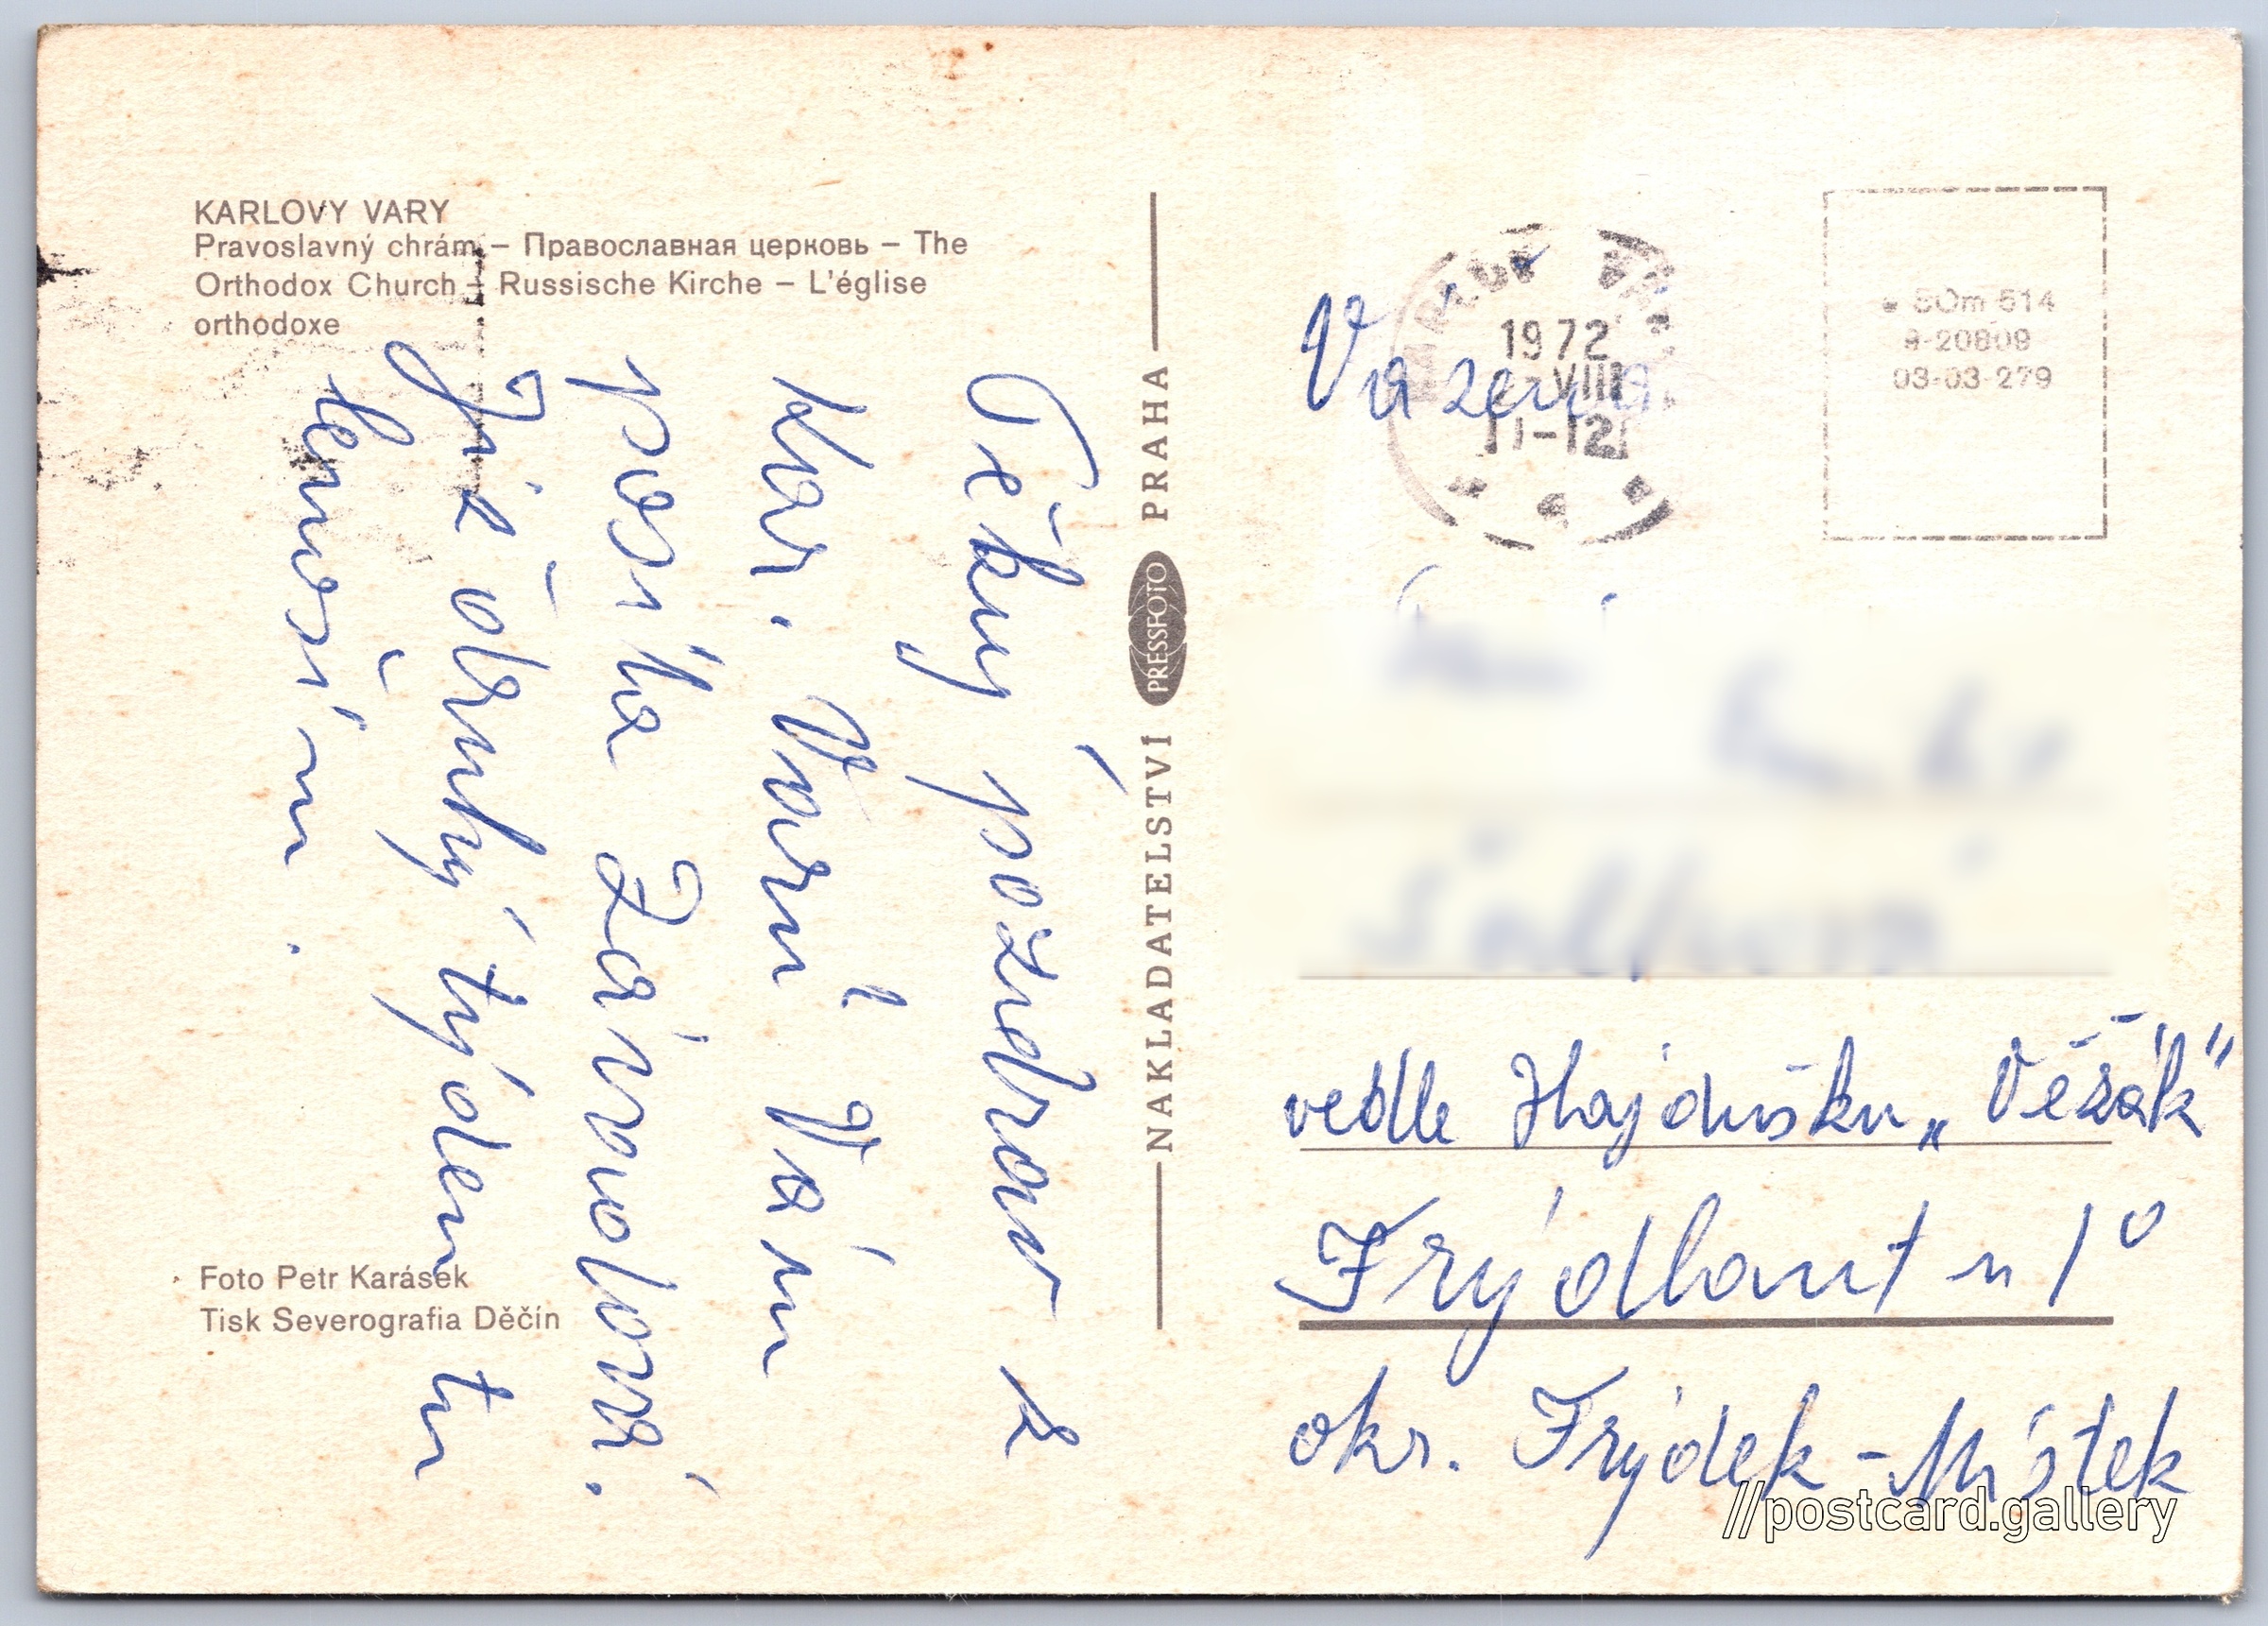 KARLOVY VARY
Pravoslavný chrám – Православная церковь – The
Orthodox Church – Russische Kirche – L'église
orthodoxe
Pěkný pozdrav z
Kar. Varů Vám
posílá Závodová.
Již druhý týden tu
lenoším.
Foto Petr Karásek
Tisk Severografia Děčín
NAKLADATELSTVÍ PRESSFOTO PRAHA
1972
VIII
11-12
03-03-279
Vážená
vedle Hajdušku „Věžák"
Frýdlant n/O
okr. Frýdek-Místek
//postcard.gallery